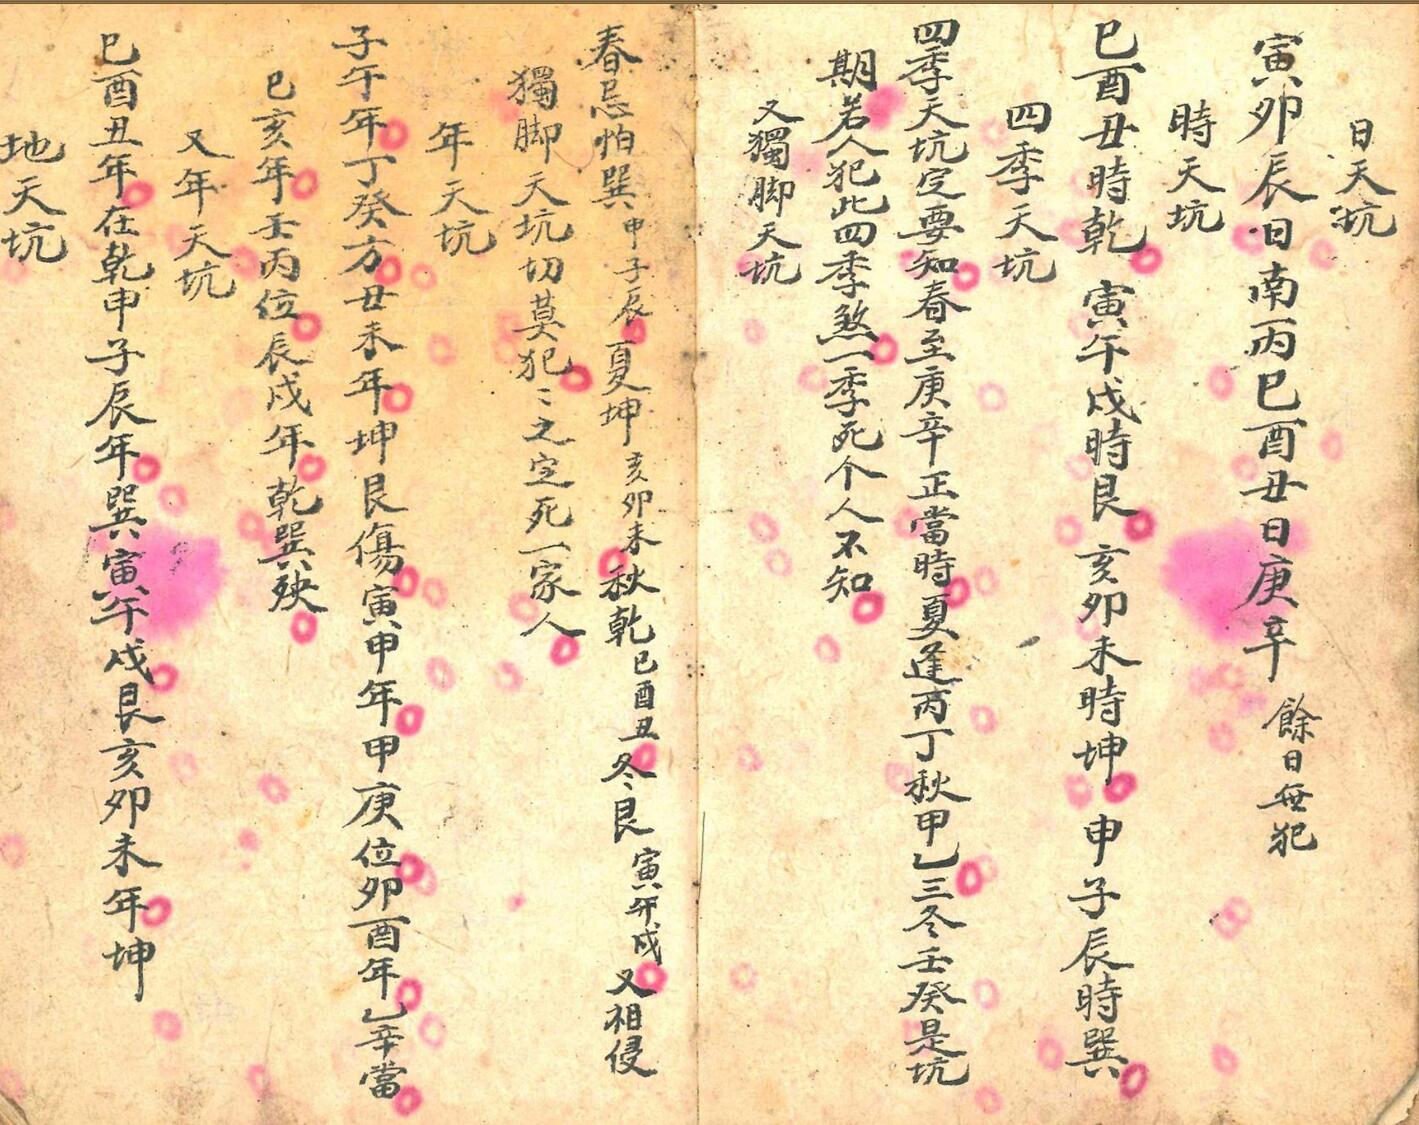 日天坑
寅卯辰日南丙巳酉丑日庚辛 餘日無犯
時天坑
巳酉丑時乾 寅午戌時艮 亥卯未時坤 申子辰時巽
四季天坑
四季天坑定要知春至庚辛正當時夏逢丙丁秋甲乙三冬壬癸是坑
期若人犯此四季煞一季死个人不知
又獨脚天坑
春忌怕巽申子辰夏坤亥卯未秋乾巳酉丑冬艮寅午戌又相侵
獨脚天坑切莫犯〻之定死一家人
年天坑
子午年丁癸方丑未年坤艮傷寅申年甲庚位卯酉年乙辛當
巳亥年壬丙位辰戌年乾巽殃
又年天坑
巳酉丑年在乾申子辰年巽寅午戌艮亥卯未年坤
地天坑